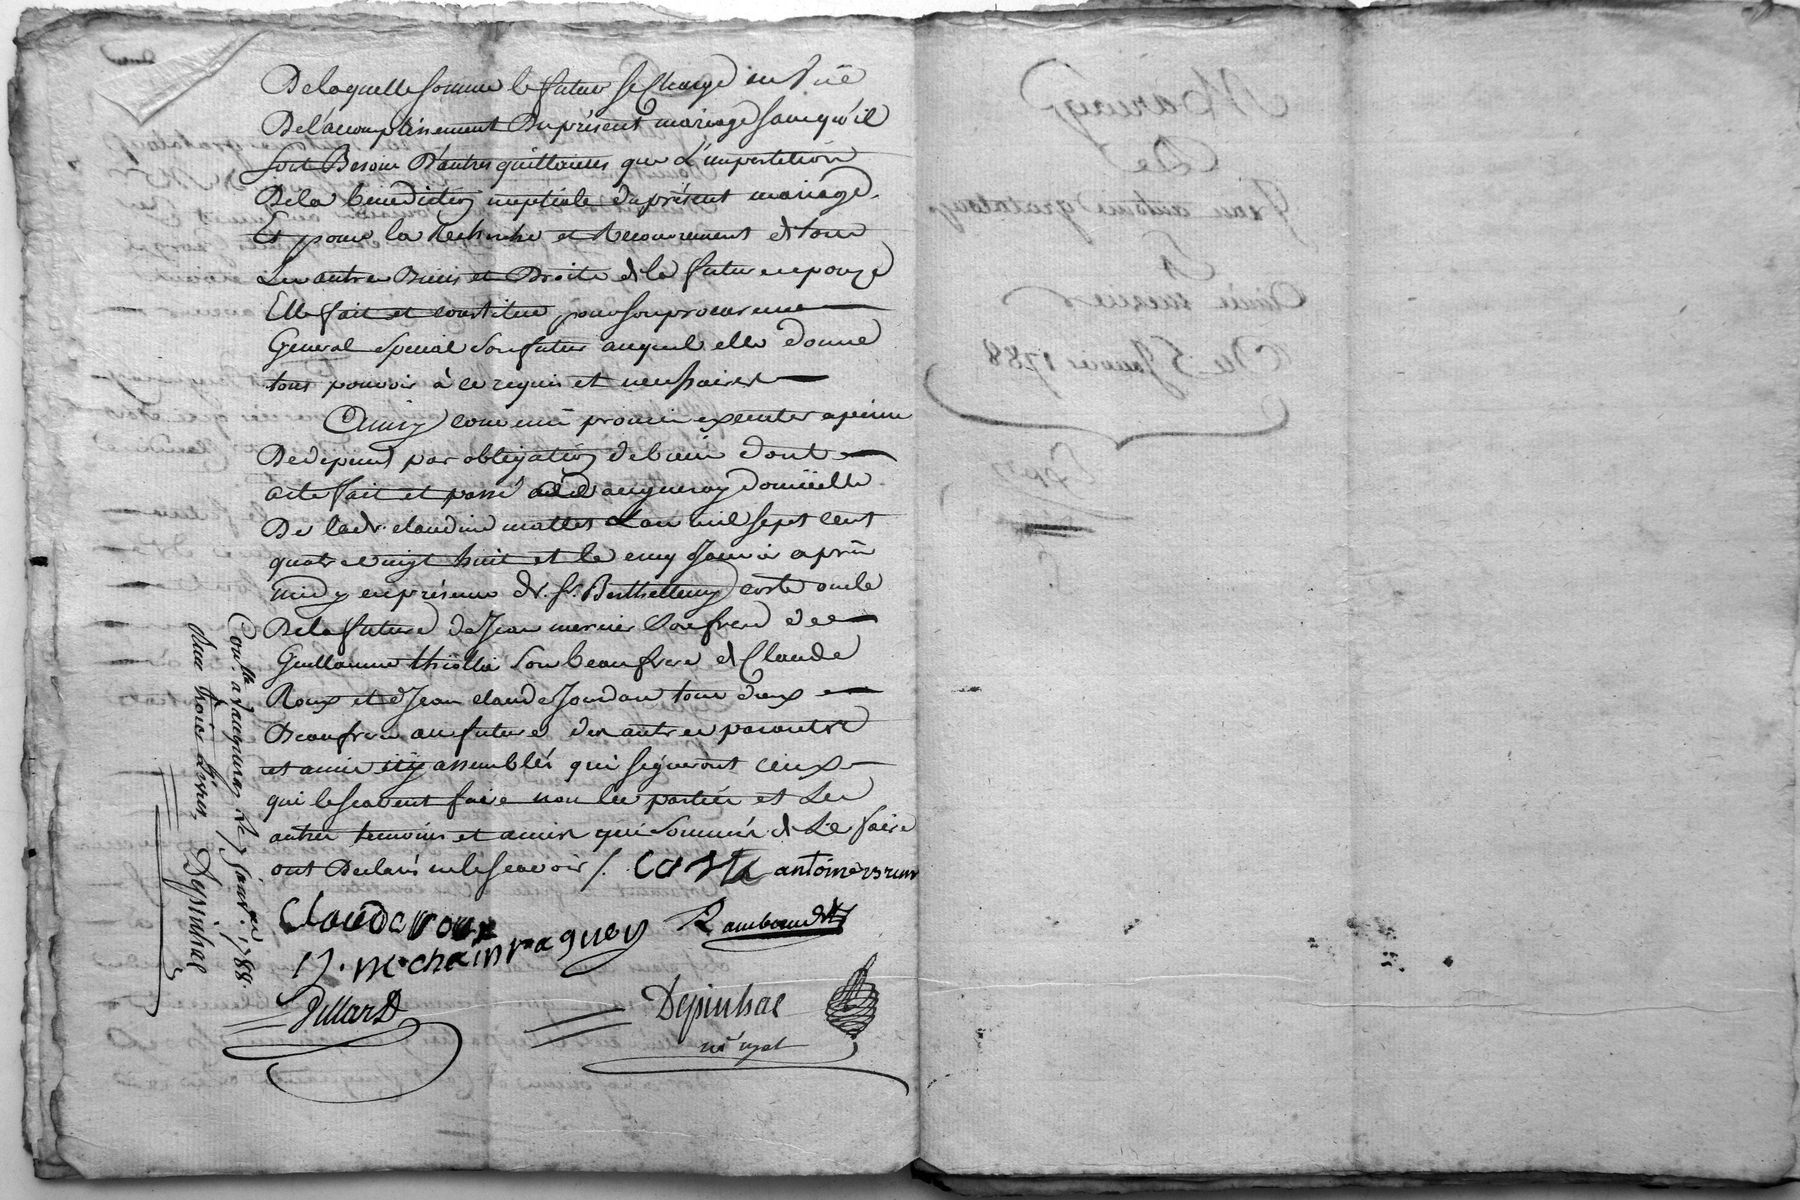 De laquelle somme le futur se charge en vüe
De l'acomplissement Du présent mariage sans qu'il
soit Besoin D'autres quittances que L'impartition
De la bénédiction nuptiale du présent mariage.
Et pour la Recherche et Recouvrement de tous
Les autres Biens et Droits de la future epouze
Elle fait et constitue pour son procureur
General special son futur auquel elle donne
tous pouvoirs à ce requis et necessaires
Ainsy convenu promis executer a peine
De depens par obligation de bien dont
acte fait et passé domicille
De lad. claudine mallet L'an mil sept cent
quatre vingt huit et le cinq Janvier après
midy en présence de s.r Berthellemy coste oncle
De la future de Jean mernier son frere de
Guillaume thiollier son beaufrere de Claude
Roux et de Jean claude Jourdan tous deux
Beaufrere au future des autres parents
et amis icy assemblés qui signeront ceux
qui le scavent faire non les parties et Les
autres temoins et amis qui sommés de Le faire
ont Declaré ne le scavoir /. coste antoine brun
Claude roux
Rambaud
Villard
Depinhac
n.re royal
Con.lle a le 7 Janv.er 1788.
trois Livres, Depinhac
Mariage
De
Jean antoine grataloup
Et
Du 5 Janvier 1788